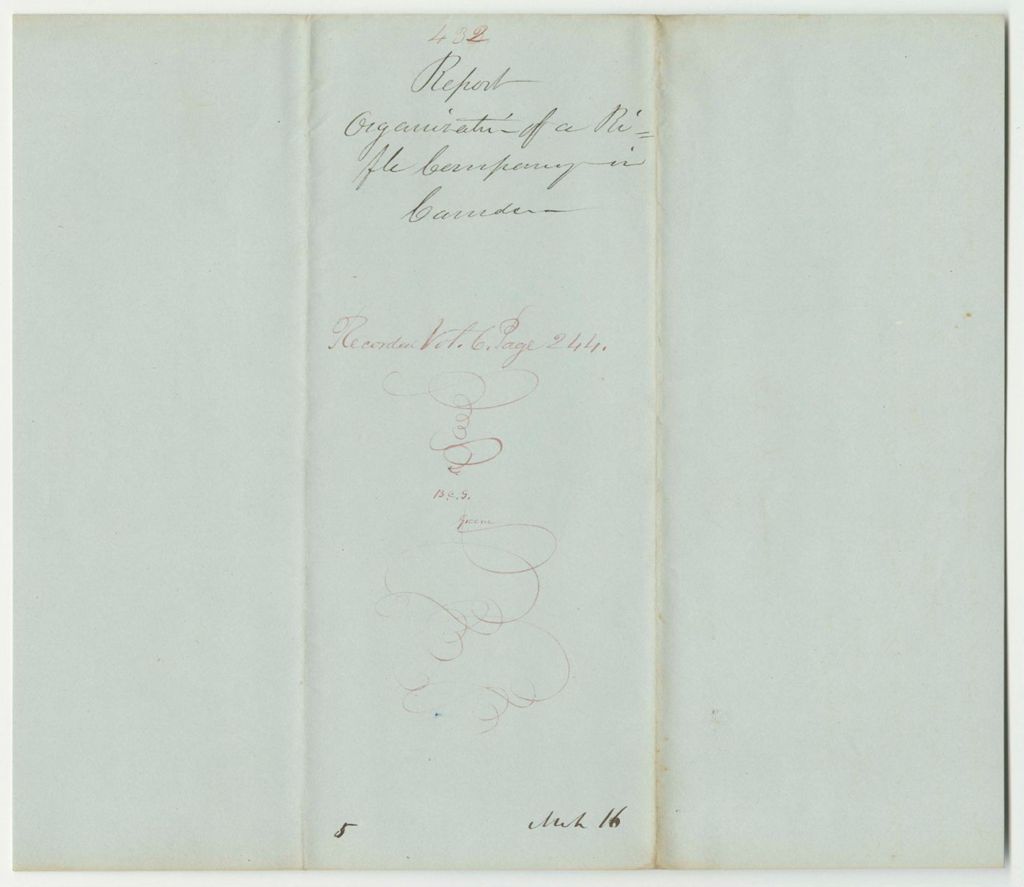 432
Report
Organisatn of a Ri=
fle Company in
Camden
Recorded Vol. 6. Page 244.
B.C.G.
Greene
5 Mch 16